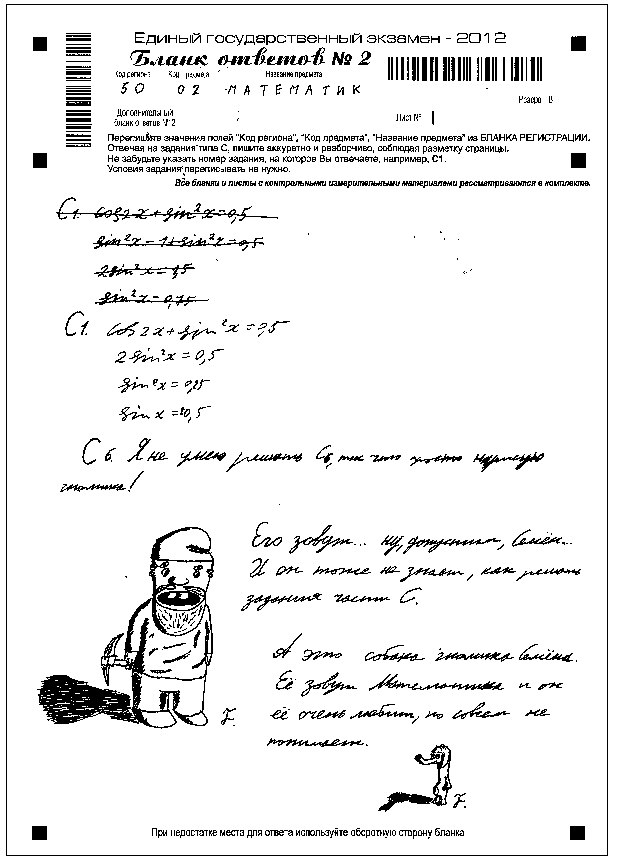 Единый государственный экзамен - 2012
Бланк ответов № 2
Код региона Код предмета Название предмета
50 02 МАТЕМАТИК
Резерв - 8
Дополнительный
бланк ответов № 2 Лист №
Перепишите значения полей "Код региона", "Код предмета", "Название предмета" из БЛАНКА РЕГИСТРАЦИИ.
Отвечая на задания типа С, пишите аккуратно и разборчиво, соблюдая разметку страницы.
Не забудьте указать номер задания, на которое Вы отвечаете, например, С1.
Условия задания переписывать не нужно.
Все бланки и листы с контрольными измерительными материалами рассматриваются в комплекте.
C1. cos2x+sin²x=0,5
sin²x-1+sin²x=0,5
2sin²x=1,5
sin²x=0,75
C1. cos2x+sin²x=0,5
2sin²x=0,5
sin²x=0,25
sin x=0,5
C6. Я не умею решать C6, так что просто нарисую
гномика!
Его зовут... ну, допустим, Семён...
И он тоже не знает, как решать
задания части С.
А это собака гномика Семёна.
Её зовут Математика и он
её очень любит, но совсем не
понимает.
При недостатке места для ответа используйте оборотную сторону бланка